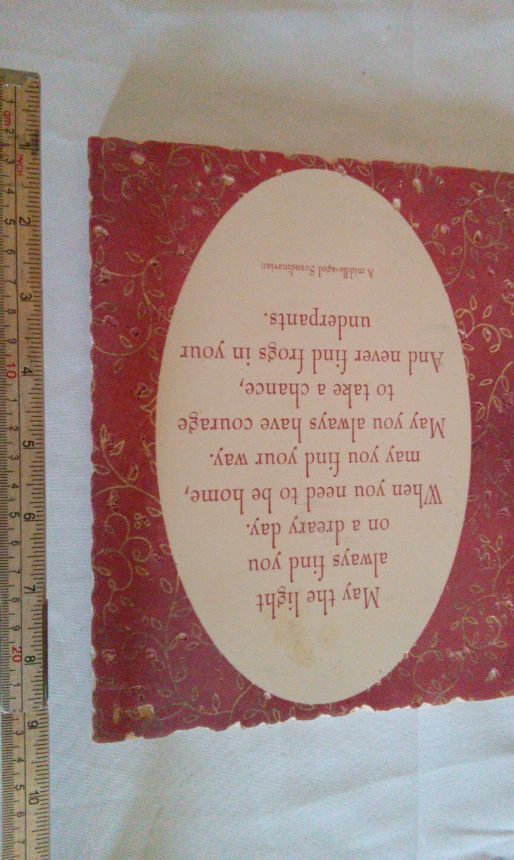 May the light
always find you
on a dreary day.
When you need to be home,
may you find your way.
May you always have courage
to take a chance,
And never find frogs in your
underpants.
A middle-aged Scandinavian
cm
INCH
1
2
3
4
5
6
7
8
9
10
10
20